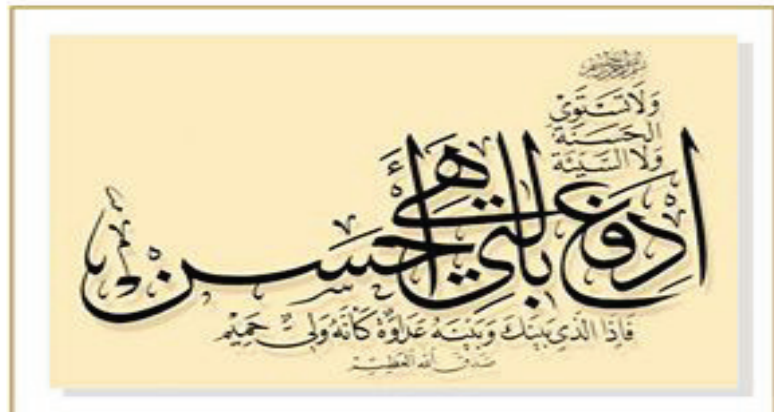 بسم الله الرحمن الرحيم
وَلَا تَسْتَوِي
الْحَسَنَةُ
وَلَا السَّيِّئَةُ
ادْفَعْ بِالَّتِي هِيَ أَحْسَنُ
فَإِذَا الَّذِي بَيْنَكَ وَبَيْنَهُ عَدَاوَةٌ كَأَنَّهُ وَلِيٌّ حَمِيمٌ
صدق الله العظيم